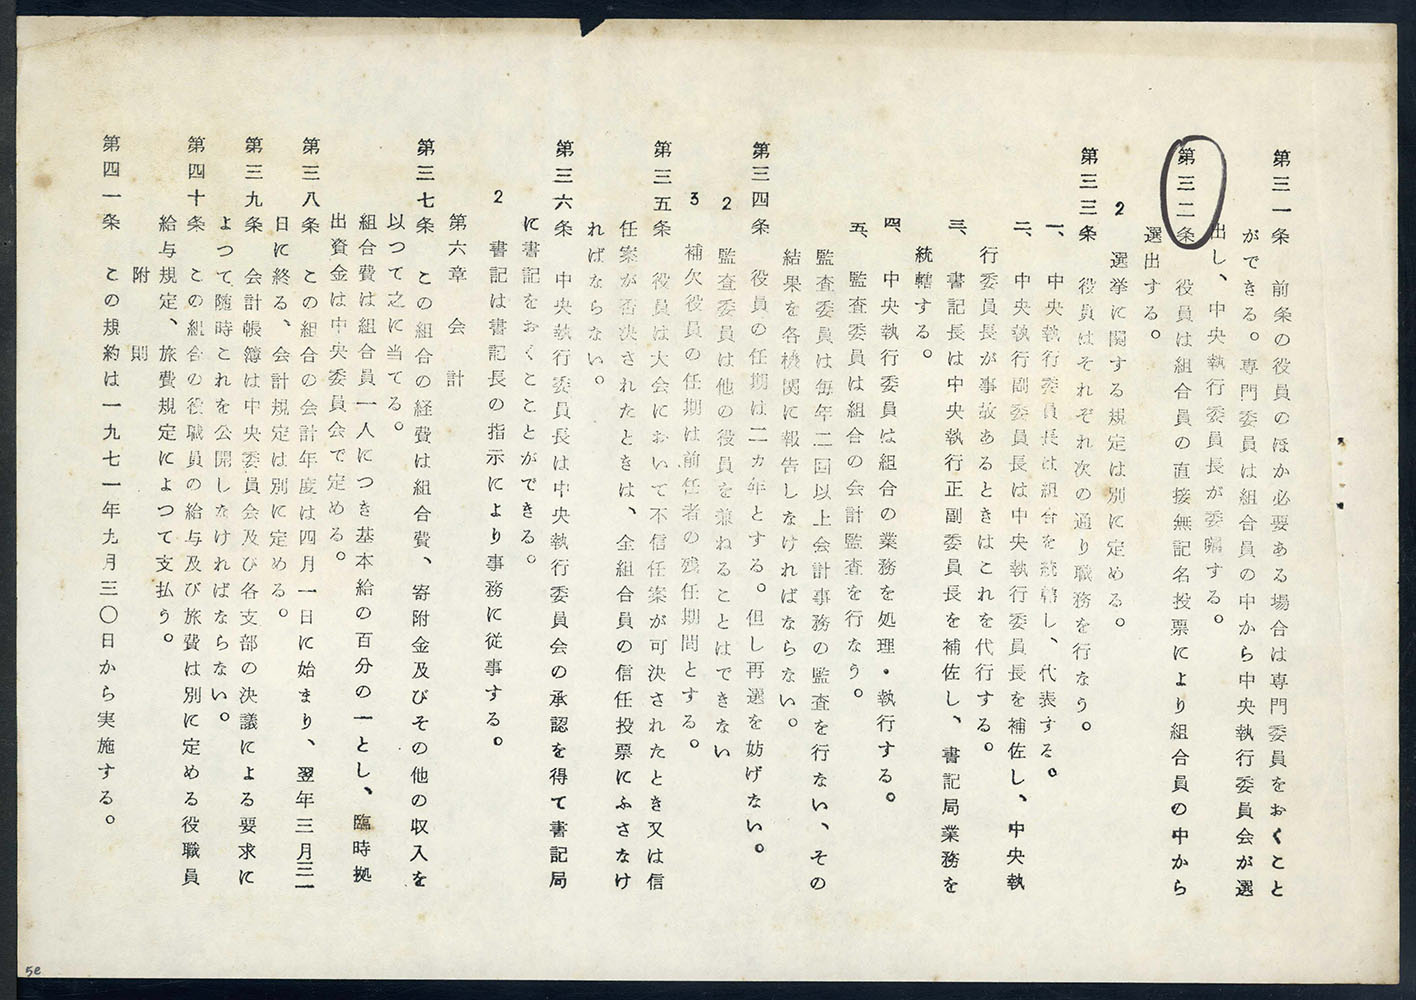 第三一条　前条の役員のほか必要ある場合は専門委員をおくこと
ができる。専門委員は組合員の中から中央執行委員会が選
出し、中央執行委員長が委嘱する。
第三二条　役員は組合員の直接無記名投票により組合員の中から
選出する。
2　選挙に関する規定は別に定める。
第三三条　役員はそれぞれ次の通り職務を行なう。
一、中央執行委員長は組合を統轄し、代表する。
二、中央執行副委員長は中央執行委員長を補佐し、中央執
行委員長が事故あるときはこれを代行する。
三、書記長は中央執行正副委員長を補佐し、書記局業務を
統轄する。
四、中央執行委員は組合の業務を処理・執行する。
五、監査委員は組合の会計監査を行なう。
監査委員は毎年二回以上会計事務の監査を行ない、その
結果を各機関に報告しなければならない。
第三四条　役員の任期は二ヵ年とする。但し再選を妨げない。
2　監査委員は他の役員を兼ねることはできない
3　補欠役員の任期は前任者の残任期間とする。
第三五条　役員は大会において不信任案が可決されたとき又は信
任案が否決されたときは、全組合員の信任投票にふさなけ
ればならない。
第三六条　中央執行委員長は中央執行委員会の承認を得て書記局
に書記をおくことができる。
2　書記は書記長の指示により事務に従事する。
第六章　会　計
第三七条　この組合の経費は組合費、寄附金及びその他の収入を
以つて之に当てる。
組合費は組合員一人につき基本給の百分の一とし、臨時拠
出資金は中央委員会で定める。
第三八条　この組合の会計年度は四月一日に始まり、翌年三月三一
日に終る、会計規定は別に定める。
第三九条　会計帳簿は中央委員会及び各支部の決議による要求に
よつて随時これを公開しなければならない。
第四十条　この組合の役職員の給与及び旅費は別に定める役職員
給与規定、旅費規定によつて支払う。
附　則
第四一条　この規約は一九七一年九月三〇日から実施する。
5e